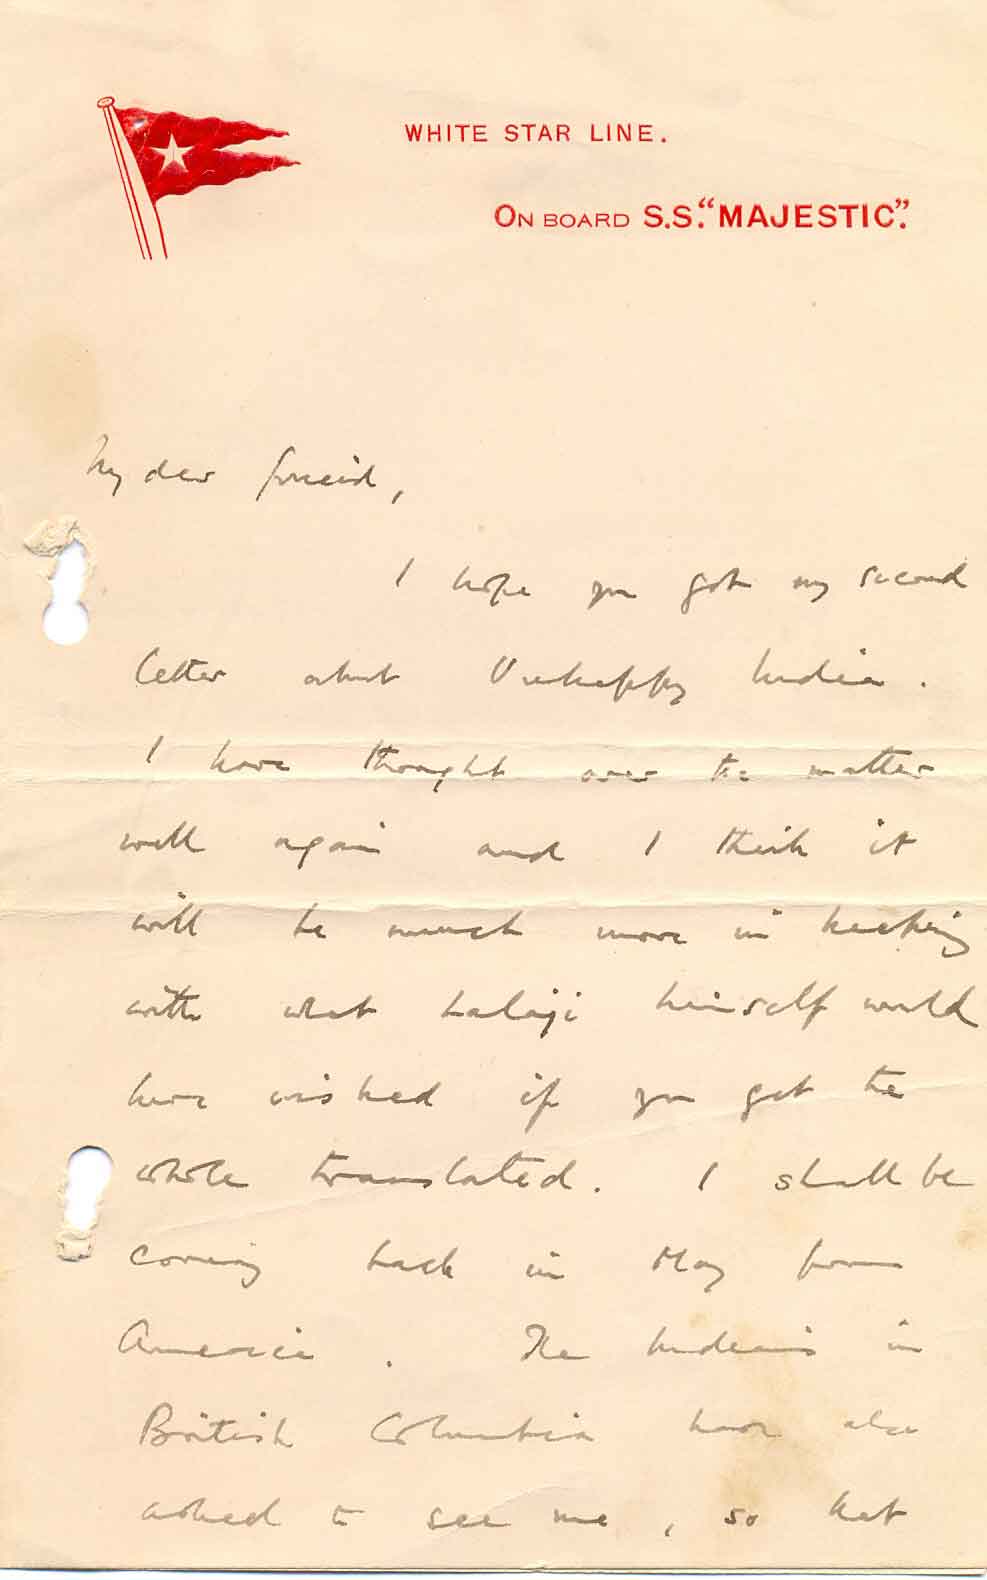 WHITE STAR LINE.
ON BOARD S.S. "MAJESTIC".
My dear friend,
I hope you got my second
letter about Unhappy India.
I have thought over the matter
well again and I think it
will be much more in keeping
with what Lalaji himself would
have wished if you get the
whole translated. I shall be
coming back in May from
America. The Indians in
British Columbia have also
asked to see me, so that